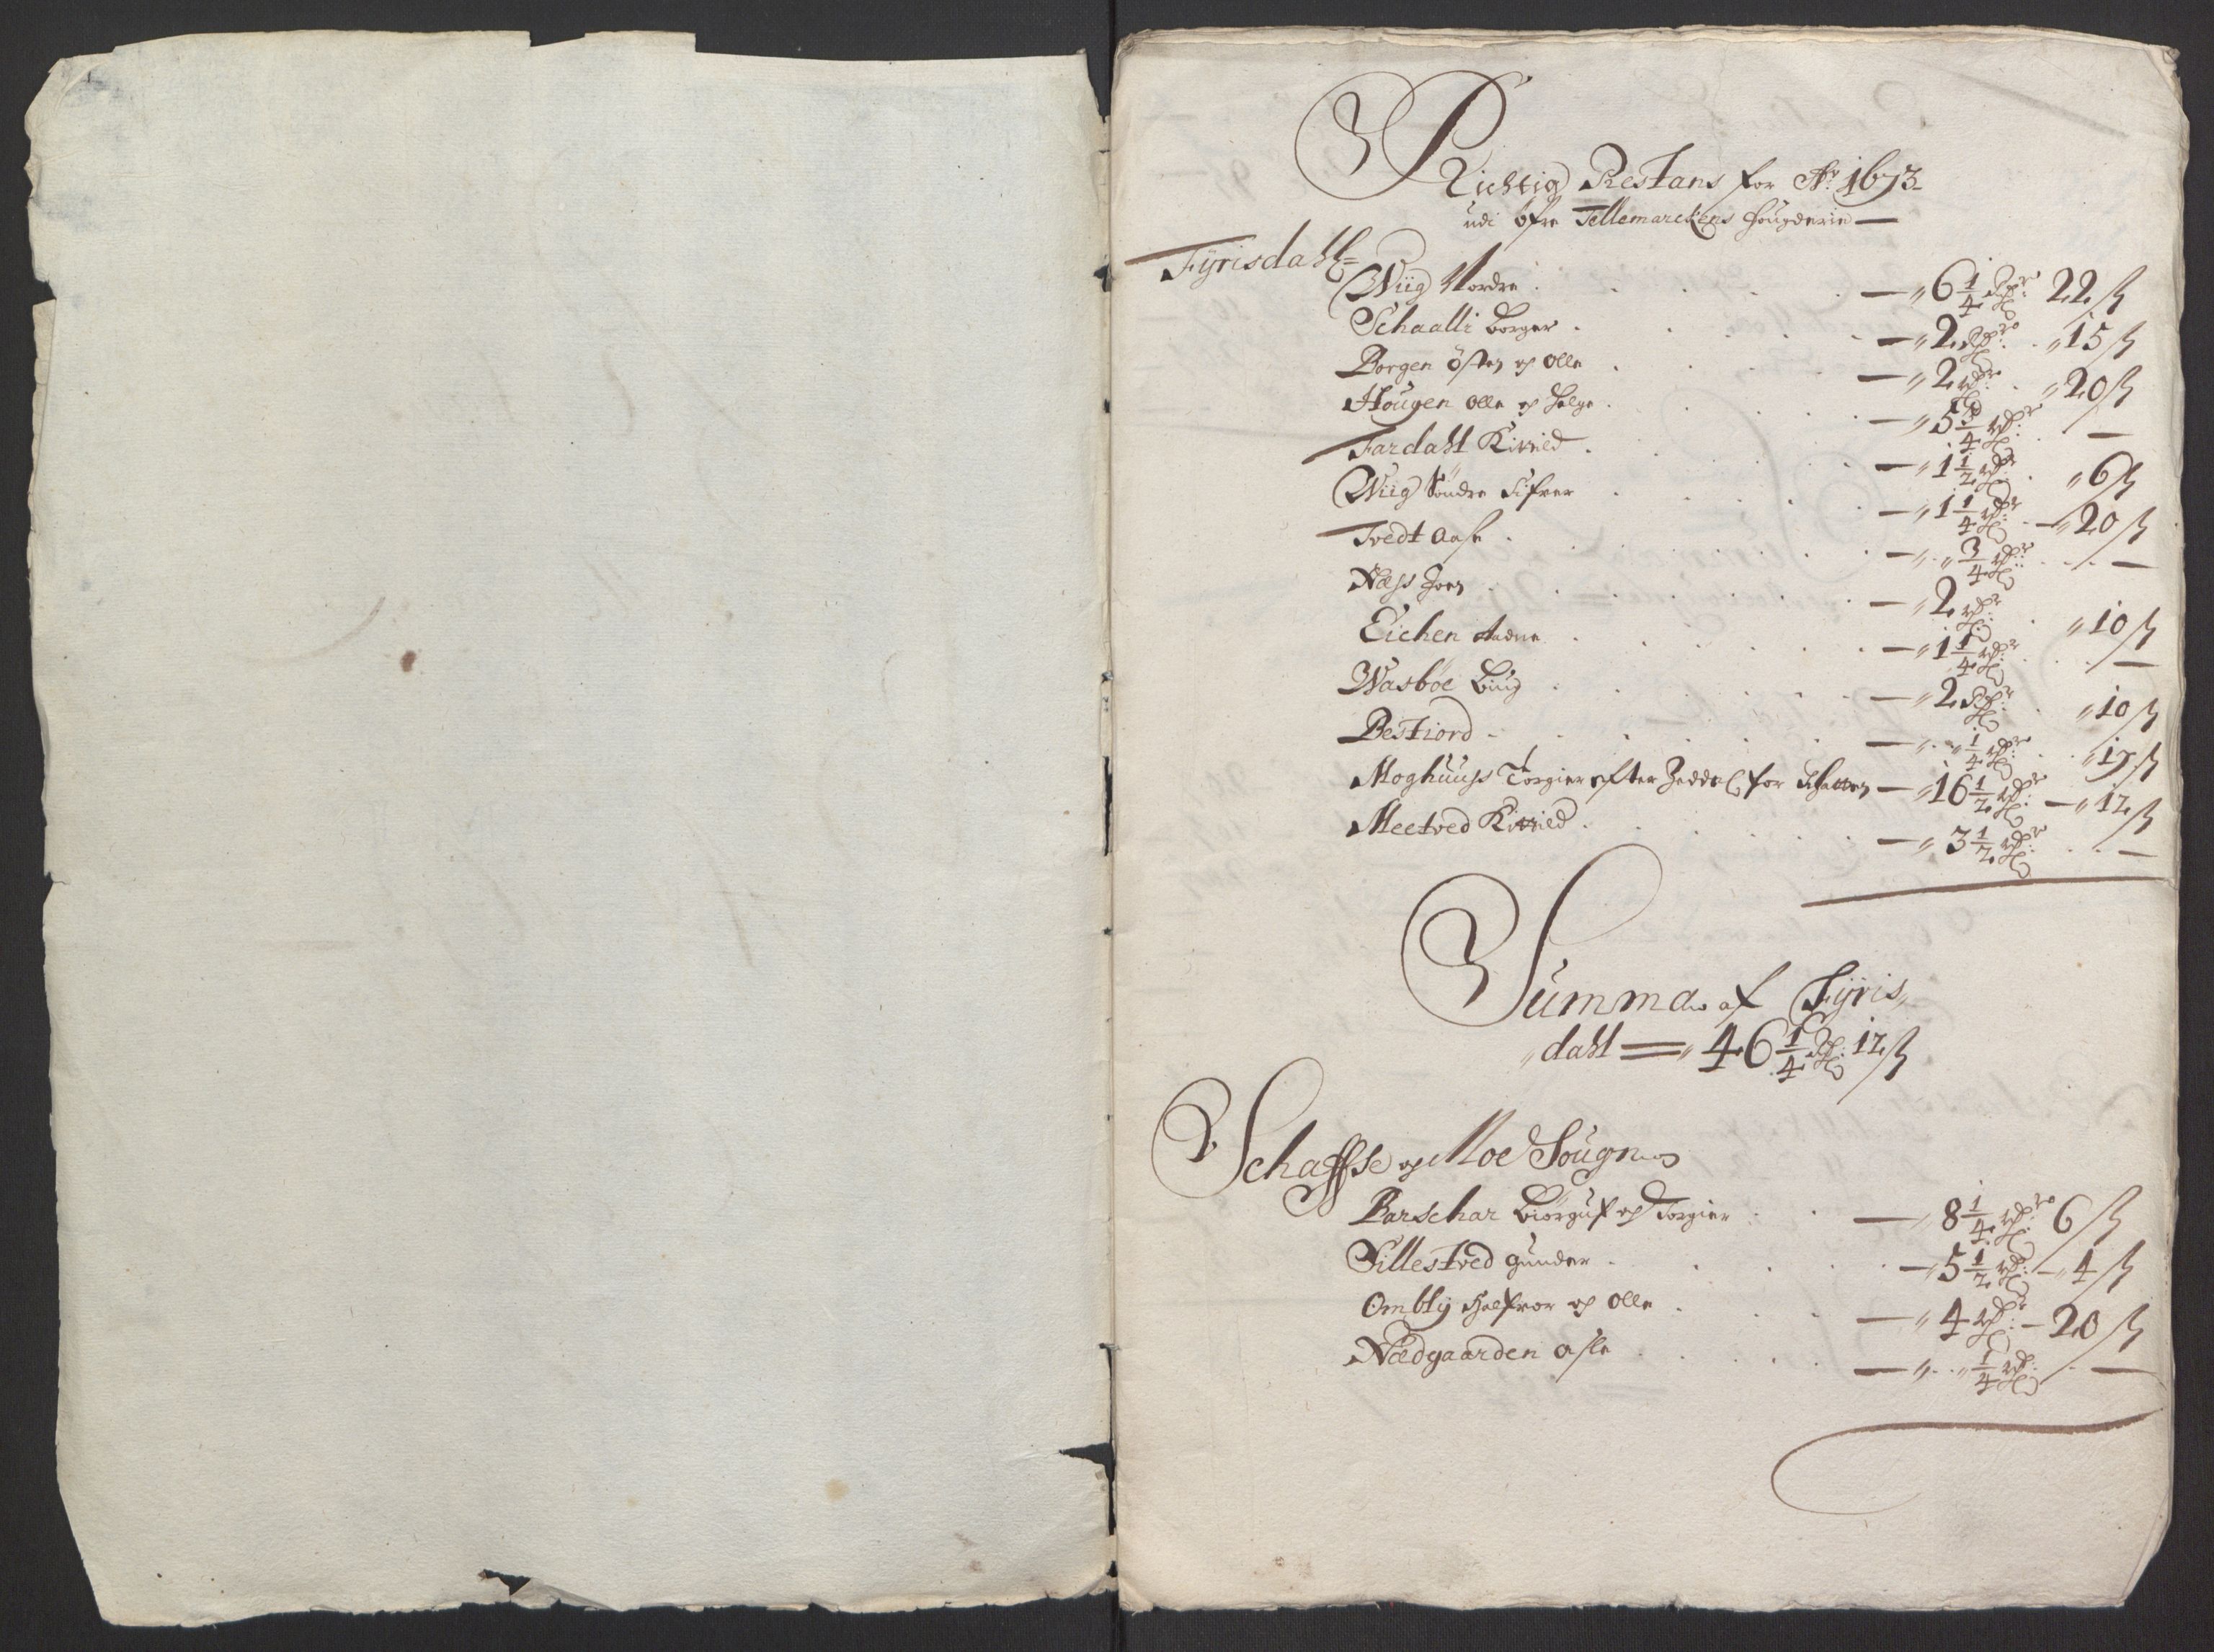 Richtig Restans for Ao 1673
udi öfre Tellemarckens fougderie —
Fyrisdahl=
Wiig Nordre . . . — „ 6 1/4 Rdr 22 ß
Schaalli Borger . . . — „ 2 Rdr . „ 15 ß
Borgen östen og Olle . . . — „ 2 Rdr . „ 20 ß
Hougen Olle og Helge . . . — „ 5 3/4 Rdr . —
Fardahl Kittild . . . — „ 1 1/2 Rdr . „ 6 ß
Wiig Söndre . . . — „ 1 1/4 Rdr — „ 20 ß
Tvedt Aase . . . — „ . „ 3/4 Rdr . . —
Næss Joen . . . — „ 2 Rdr . „ 10 ß
Eichen . . . — „ 1 1/4 Rdr . . —
Wasböe . . . — „ 2 Rdr . „ 10 ß
Bestiord . . . — „ . „ 1/4 Rdr . . „ 19 ß
Moghuuss Torgier efter Zeddel for Schatten — „ 16 1/2 Rdr — „ 12 ß
Meetved Kittild . . . — „ 3 1/2 Rdr . . —
Summa af Fyris„
„dahl = „ 46 1/4 Rd: 12 ß
Schaffse og Moe Sougner
Barschar Biörguf og Torgier . . — „ 8 1/4 Rdr 6 ß
Tillestved Gunder . . . — „ 5 1/2 Rd: — „ 4 ß
Ombly Halfvor og Olle . . . — „ 4 Rdr — 20 ß
Nædgaarden Asle . . . — „ . „ 1/4 Rd: . —